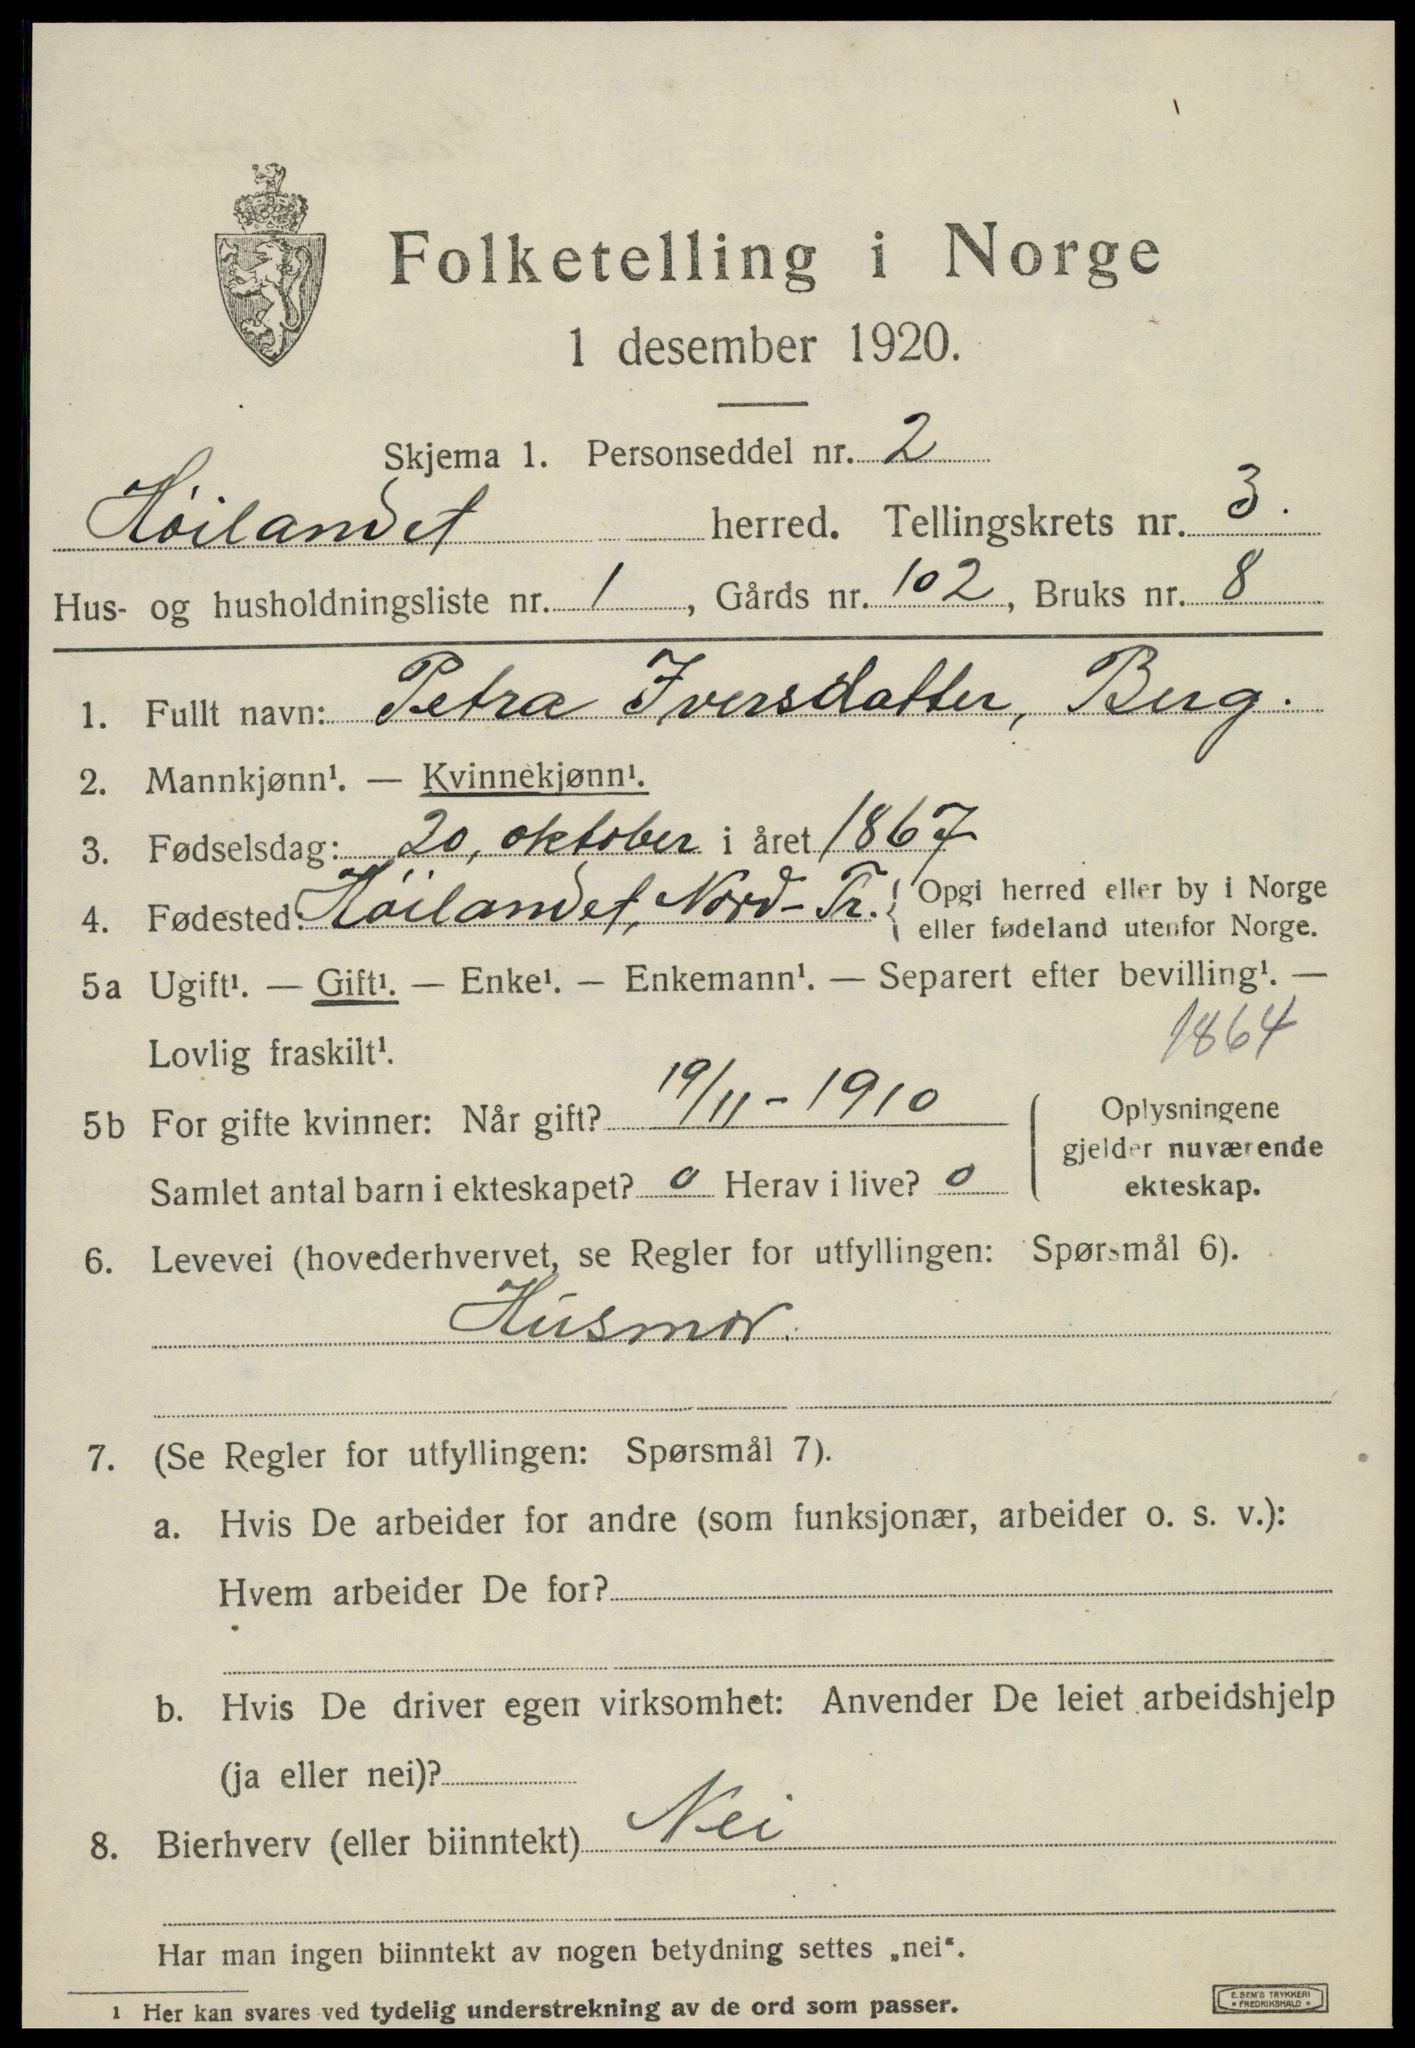 Folketelling i Norge
1 desember 1920.
Skjema 1. Personseddel nr. 2
Höilandet herred. Tellingskrets nr. 3.
Hus- og husholdningsliste nr. 1, Gårds nr. 102, Bruks nr. 8
1. Fullt navn: Petra Iversdatter, Berg.
2. Mannkjønn¹. — Kvinnekjønn¹.
3. Fødselsdag: 20, oktober i året 1867
4. Fødested: Höilandet, Nord-Tr. { Opgi herred eller by i Norge
eller fødeland utenfor Norge.
5a Ugift¹. — Gift¹. — Enke¹. — Enkemann¹. — Separert efter bevilling¹. —
Lovlig fraskilt¹. 1864
5b For gifte kvinner: Når gift? 19/11-1910
Samlet antal barn i ekteskapet? 0 Herav i live? 0
Oplysningene
gjelder nuværende
ekteskap.
6. Levevei (hovederhvervet, se Regler for utfyllingen: Spørsmål 6).
Husmor.
7. (Se Regler for utfyllingen: Spørsmål 7).
a. Hvis De arbeider for andre (som funksjonær, arbeider o. s. v.):
Hvem arbeider De for?
b. Hvis De driver egen virksomhet: Anvender De leiet arbeidshjelp
(ja eller nei)?
8. Bierhverv (eller biinntekt) Nei
Har man ingen biinntekt av nogen betydning settes „nei“.
1 Her kan svares ved tydelig understrekning av de ord som passer.
E. SEM'S TRYKKERI
• FREDRIKSHALD •